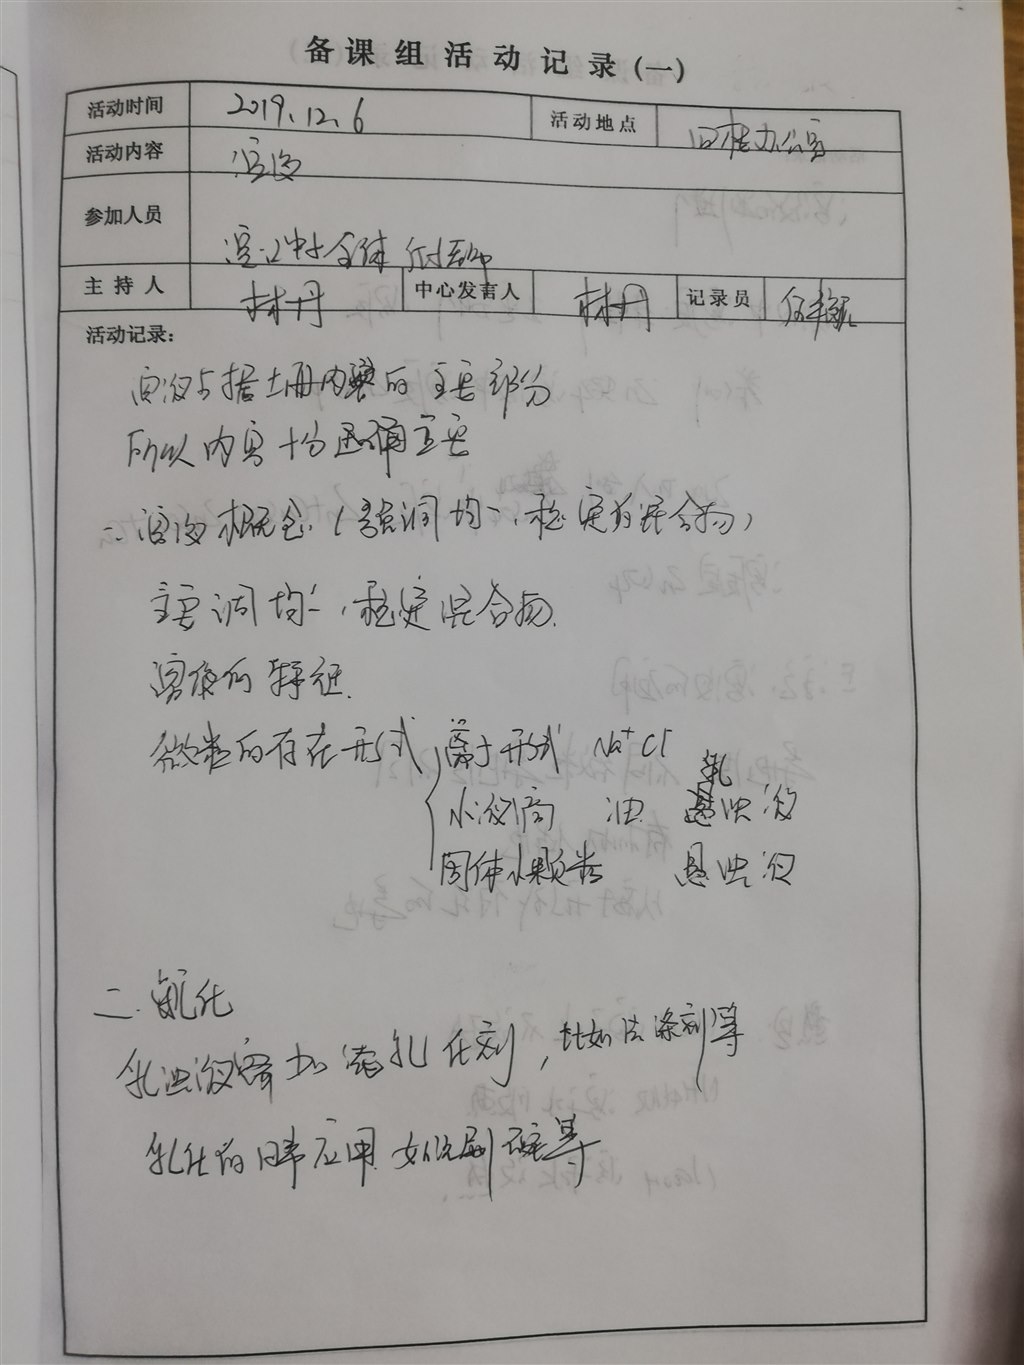 备课组活动记录(一)
活动时间 2019.12.6 活动地点 旧楼办公室
活动内容 溶液
参加人员 全体
主持人 林丹 中心发言人 林丹 记录员
活动记录:
溶液占据上册内容的主要部分
所以内容十分 重要
溶液概念(强调均一、稳定的混合物)
主要调均一、稳定混合物.
溶液的特征.
微粒的存在形式 离子形式 Na⁺Cl⁻
小液滴 油 乳浊液
固体小颗粒 悬浊液
二.乳化
乳浊液 加 乳化剂,比如洗涤剂等
乳化的日常应用.如洗刷碗等